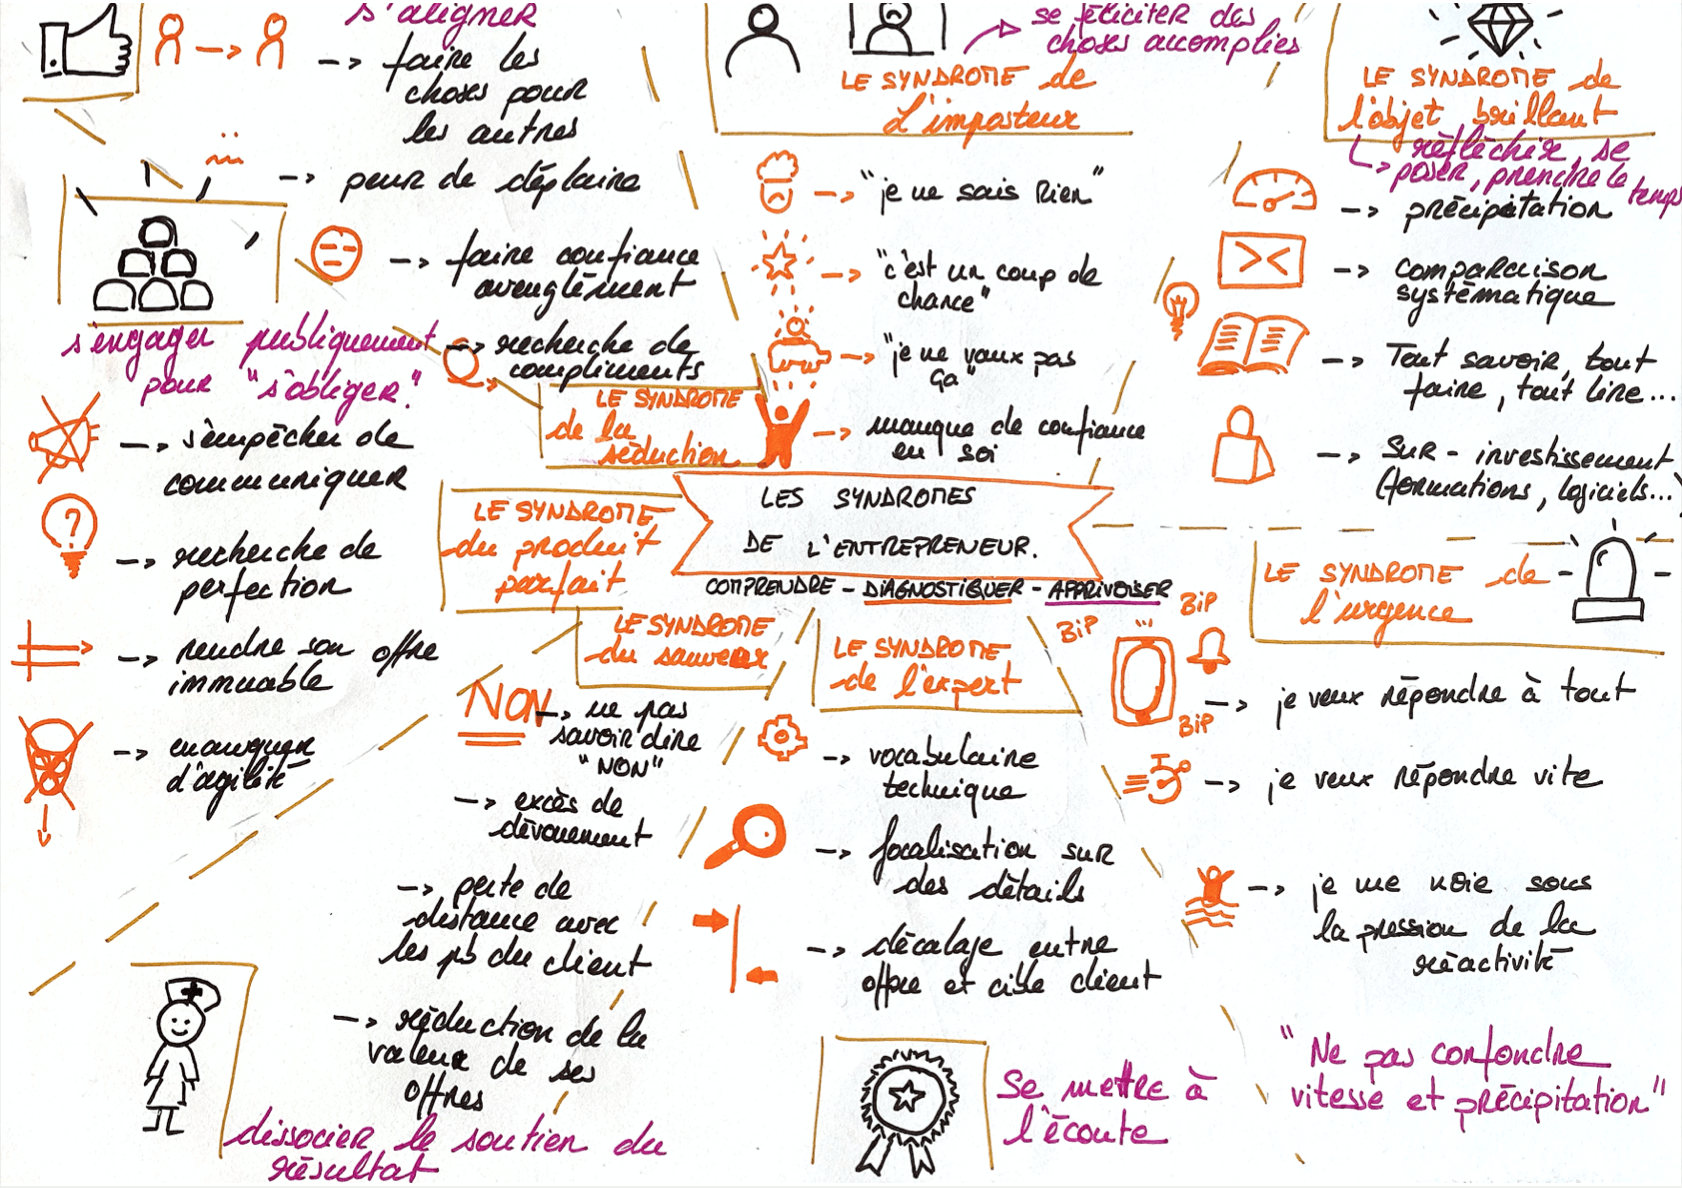 s'aligner
-> faire les
choses pour
les autres
-> peur de déplaire
-> faire confiance
aveuglément
-> recherche de
compliments
LE SYNDROME
de la
séduction
se féliciter des
choses accomplies
LE SYNDROME de
L'imposteur
-> "je ne sais rien"
-> "c'est un coup de
chance"
-> "je ne vaux pas
ça"
-> manque de confiance
en soi
LE SYNDROME de
l'objet brillant
-> réfléchir, se
poser, prendre le temps
-> précipitation
-> comparaison
systématique
-> Tout savoir, tout
faire, tout lire...
-> SUR-investissement
(formations, logiciels...)
s'engager publiquement
pour "s'obliger."
-> s'empêcher de
communiquer
?
-> recherche de
perfection
-> rendre son offre
immuable
-> manquer
d'agilité
LE SYNDROME
du produit
parfait
LES SYNDROMES
DE L'ENTREPRENEUR.
COMPRENDRE - DIAGNOSTIQUER - APPRIVOISER
LE SYNDROME
du sauveur
NON
-> ne pas
savoir dire
"NON"
-> excès de
dévouement
-> perte de
distance avec
les pb du client
-> réduction de la
valeur de ses
offres
dissocier le soutien du
résultat
LE SYNDROME
de l'expert
-> vocabulaire
technique
-> focalisation sur
des détails
-> décalage entre
offre et cible client
Se mettre à
l'écoute
LE SYNDROME de
l'urgence
BIP
BIP
BIP
-> je veux répondre à tout
-> je veux répondre vite
-> je me noie sous
la pression de la
réactivité
"Ne pas confondre
vitesse et précipitation"